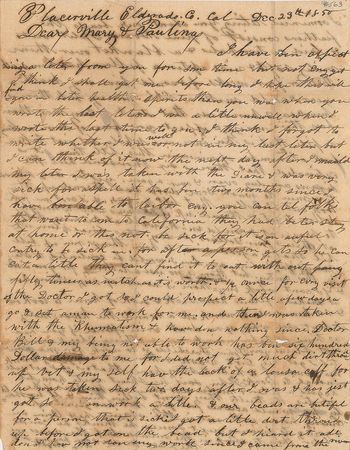 Placerville Eldorado. Co. Cal Dec 23th 1850
Dear Mary & Paulina
I have bin expect
ing a letter from you for some time but not eny yet
I think I shall get one before long I hope this will
find you in beter health & spirits than you was when you
wrote the last letter I was a little unwell when I
wrote the last time to you & I think I forgot to
write whether I was or not in my last letter but
I can think of it now the next day after I mailed
my letter I was taken with the and was very
sick for a spell it has bin two months since I
have bin able to labor eny you can tel folks
that want to com to California they had beter stay
at home if they not so sick for it is an awful
cuntry to be sick in for after a person gets so he can
eat a little they cant find it to eat with out paying
fifty times as much as it is worth & for every visit
of the Doctor I got so I could prospect a little a few days a
go & set a man to work for me and then I was taken
with the Rhumatism & have don nothing since Doctor
Bill & my being not able to work has bin six hundred
Dollars damage to me for I did not get much dirt thrown
up but my self have the luck of a for
he was taken sick two days after I was & has just
got so work a little & our beads are
for a person that is sick I got a little dirt thrown
up before I got on the but I heard it
don eny work since I came from the